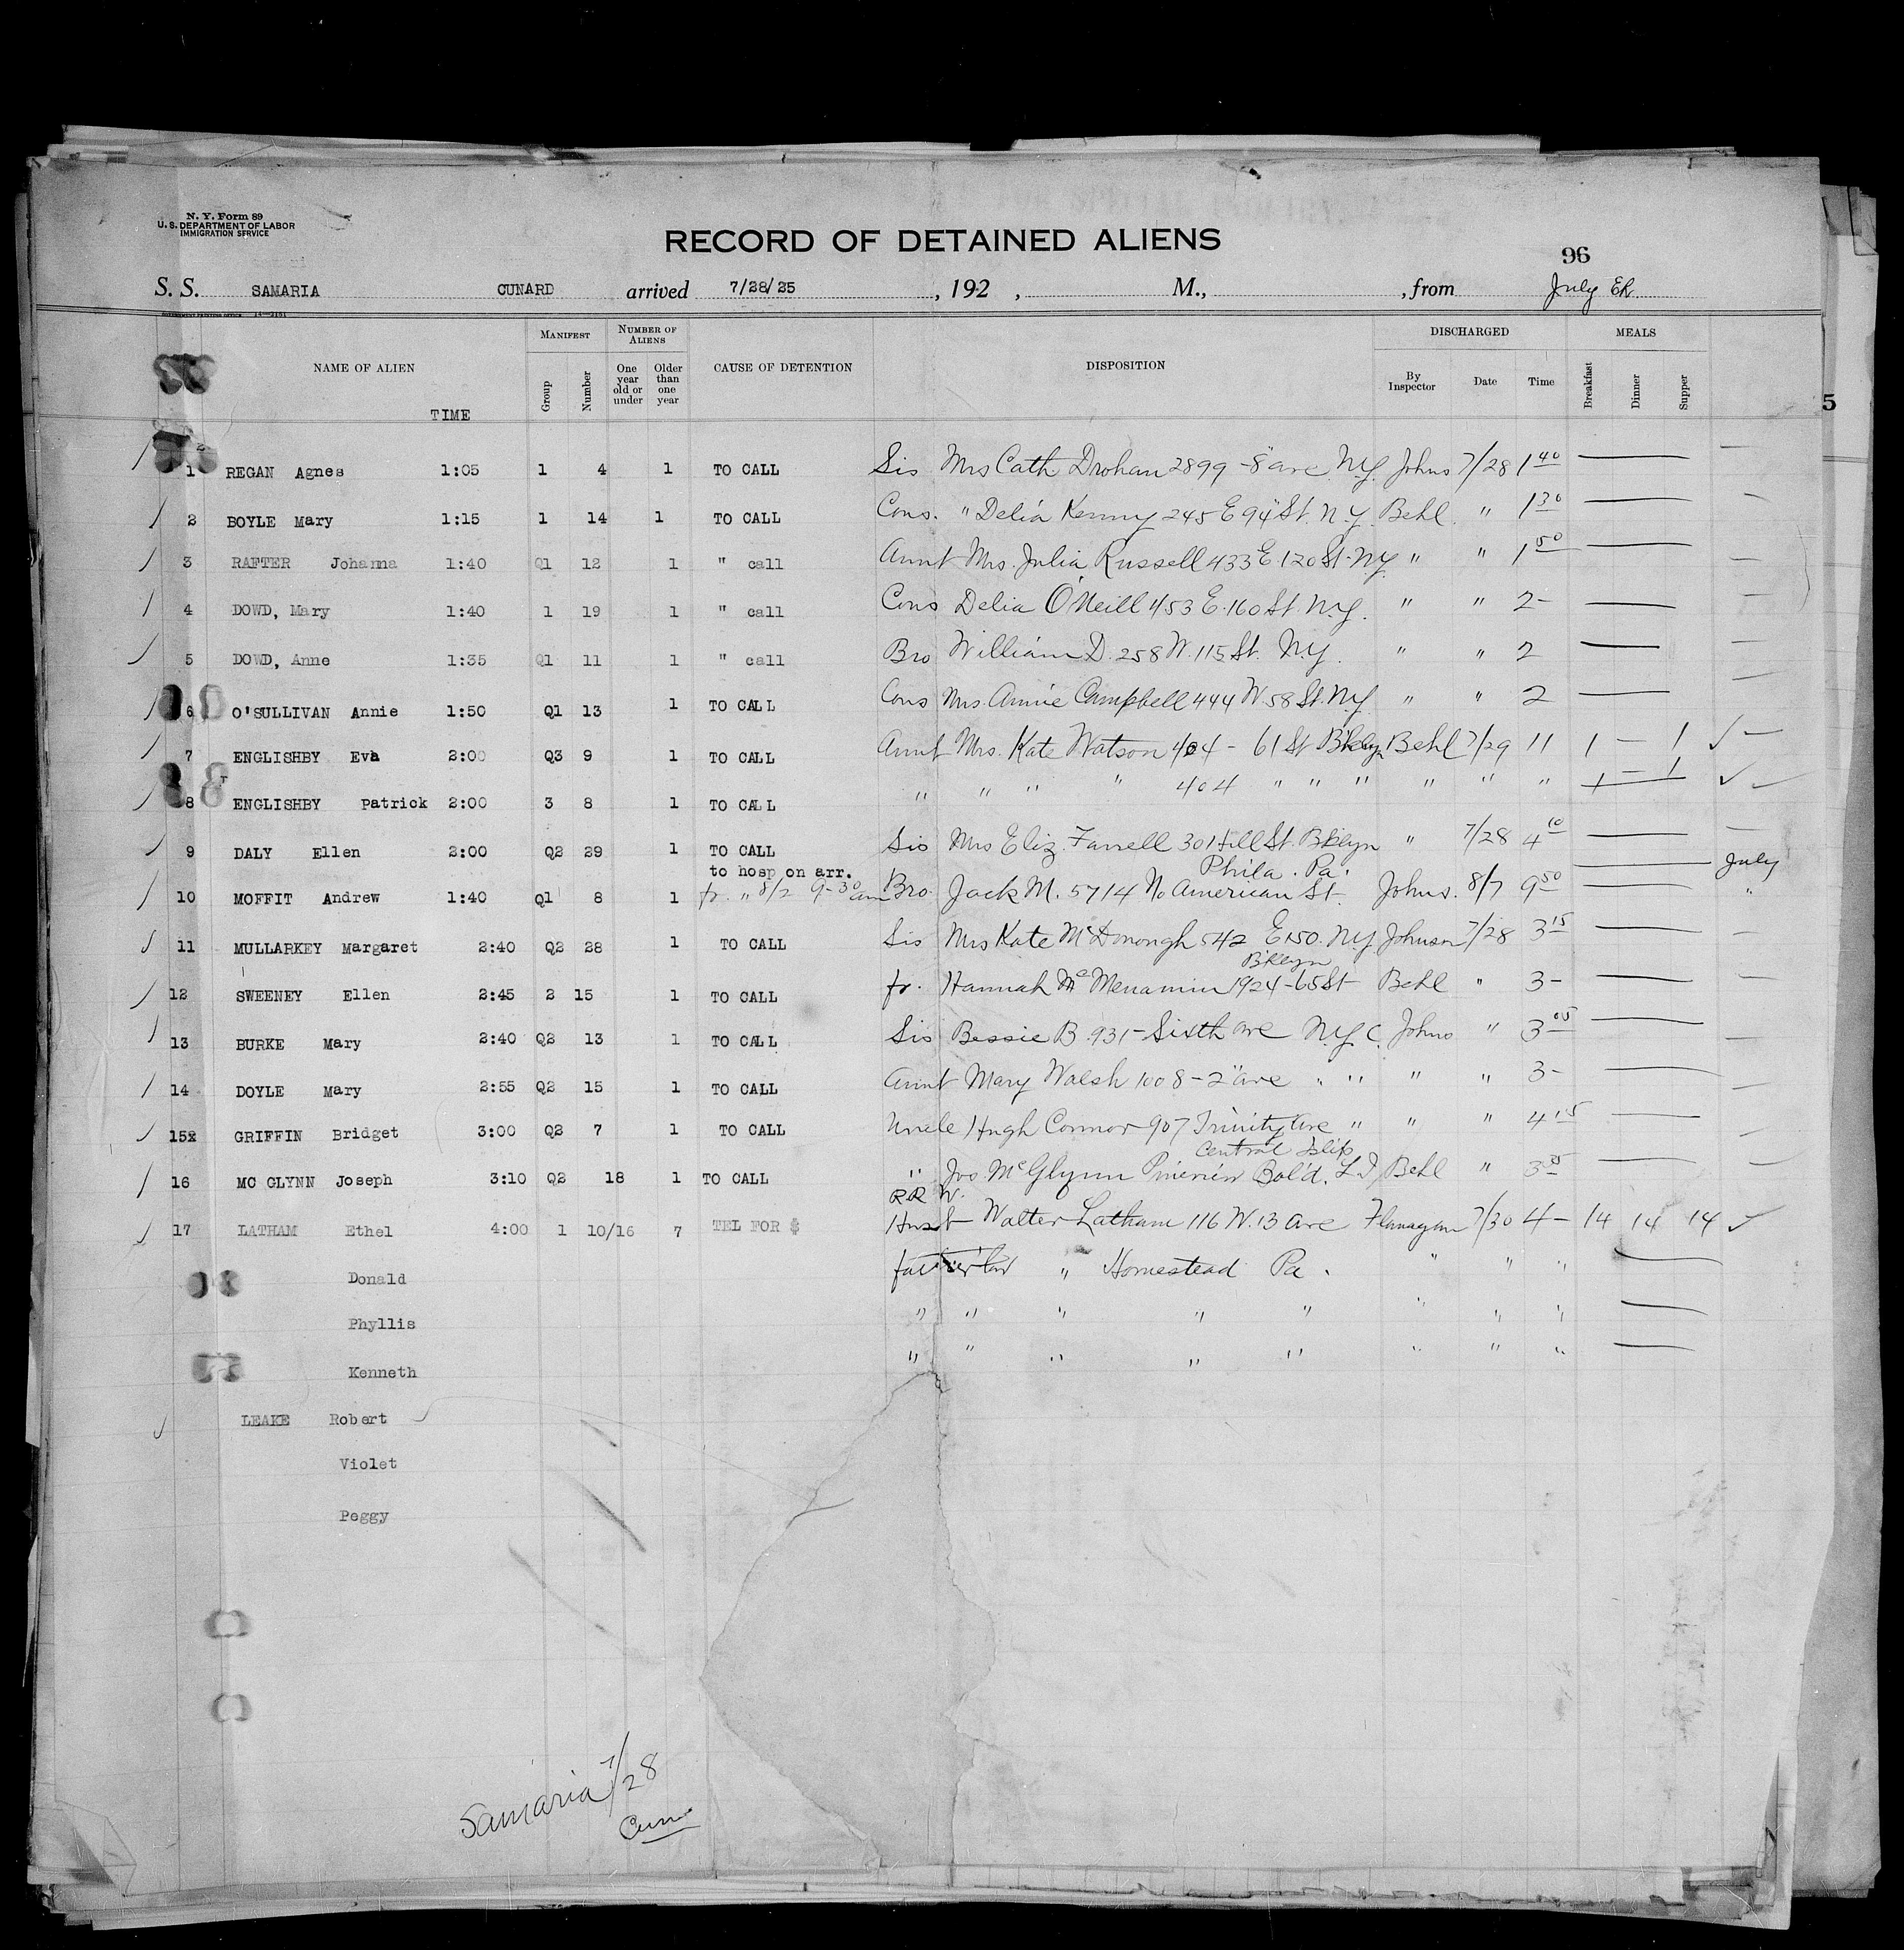 N. Y. Form 89
U. S. DEPARTMENT OF LABOR
IMMIGRATION SERVICE
RECORD OF DETAINED ALIENS
96
S. S. SAMARIA CUNARD arrived 7/28/25, 192 , M., , from July
NAME OF ALIEN TIME MANIFEST Group Number NUMBER OF ALIENS One year old or under Older than one year CAUSE OF DETENTION DISPOSITION DISCHARGED By Inspector Date Time MEALS Breakfast Dinner Supper
5
1 REGAN Agnes 1:05 1 4 1 TO CALL Sis Mrs Cath Drohan 2899 - 8" ave. N.Y. Johns 7/28 1 40 —
2 BOYLE Mary 1:15 1 14 1 TO CALL Cons. " Delia Kenny 245 E 94" St. N.Y. Behl " 1 30 —
3 RAFTER Johanna 1:40 Q1 12 1 " call Aunt Mrs. Julia Russell 433 E. 120 St. N.Y. " " 1 50 —
4 DOWD, Mary 1:40 1 19 1 " call Cons Delia O'Neill 453 E. 160 St. N.Y. " " 2 —
5 DOWD, Anne 1:35 Q1 11 1 " call Bro William D. 258 W. 115 St. N.Y. " " 2 —
6 O'SULLIVAN Annie 1:50 Q1 13 1 TO CALL Cons Mrs. Annie Campbell 444 W. 58 St. N.Y. " " 2 —
7 ENGLISHBY Eva 2:00 Q3 9 1 TO CALL Aunt Mrs. Kate Watson 404 - 61 St Bklyn Behl 7/29 11 1 — 1 ✓ —
8 ENGLISHBY Patrick 2:00 3 8 1 TO CALL " " " " 404 " " " " " " 1 — 1 ✓
9 DALY Ellen 2:00 Q2 29 1 TO CALL Sis Mrs Eliz. Farrell 30 Hill St. Bklyn " 7/28 4 10 —
to hosp on arr. Phila. Pa. July
10 MOFFIT Andrew 1:40 Q1 8 1 fr. " 8/2 9-30 am Bro. Jack M. 5714 No American St. Johns. 8/7 9 50 — "
11 MULLARKEY Margaret 2:40 Q2 28 1 TO CALL Sis Mrs Kate McDonough 542 E 150. N.Y. Johnson 7/28 3 15 —
Bklyn
12 SWEENEY Ellen 2:45 2 15 1 TO CALL fr. Hannah McMenamin 1924 - 65 St Behl " 3 —
13 BURKE Mary 2:40 Q2 13 1 TO CALL Sis Bessie B. 931 - Sixth ave N.Y.C. Johns " 3 05 —
14 DOYLE Mary 2:55 Q2 15 1 TO CALL Aunt Mary Walsh 1008 - 2" ave " " " " 3 —
15x GRIFFIN Bridget 3:00 Q2 7 1 TO CALL Uncle Hugh Connor 907 Trinity Ave " " " 4 15 —
Central Islip
16 MC GLYNN Joseph 3:10 Q2 18 1 TO CALL " Jos. McGlynn L I Behl " —
RR W.
17 LATHAM Ethel 4:00 1 10/16 7 TEL FOR $ Husb Walter Latham 116 W. 13 Ave Flanagan 7/30 4 — 14 14 14 ✓
Donald " Homestead Pa. " " " —
Phyllis " " " " " " " " —
Kenneth " " " " " " " " —
LEAKE Robert
Violet
Peggy
Samaria 7/28